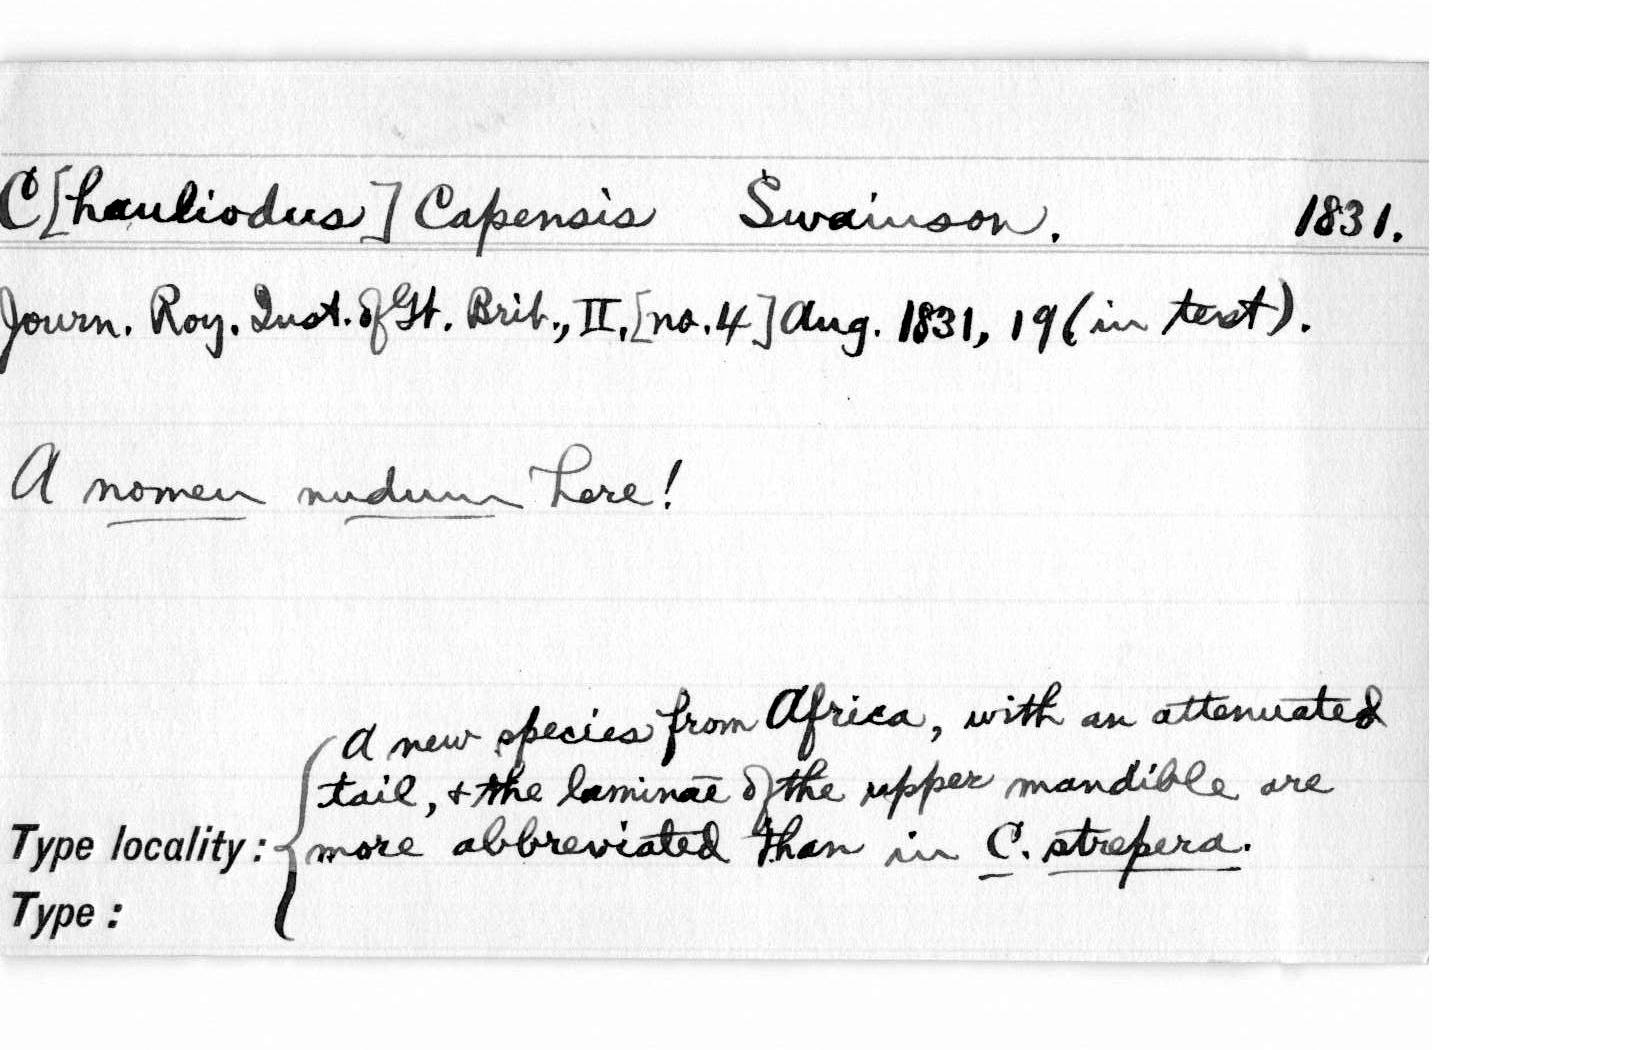 C[hauliodus] Capensis Swainson. 1831.
Journ. Roy. Inst. of Gt. Brit., II, [no. 4] Aug. 1831, 19 (in text).
A nomen nudum here!
A new species from Africa, with an attenuated
tail, & the laminae of the upper mandible are
Type locality: more abbreviated than in C. strepera.
Type: